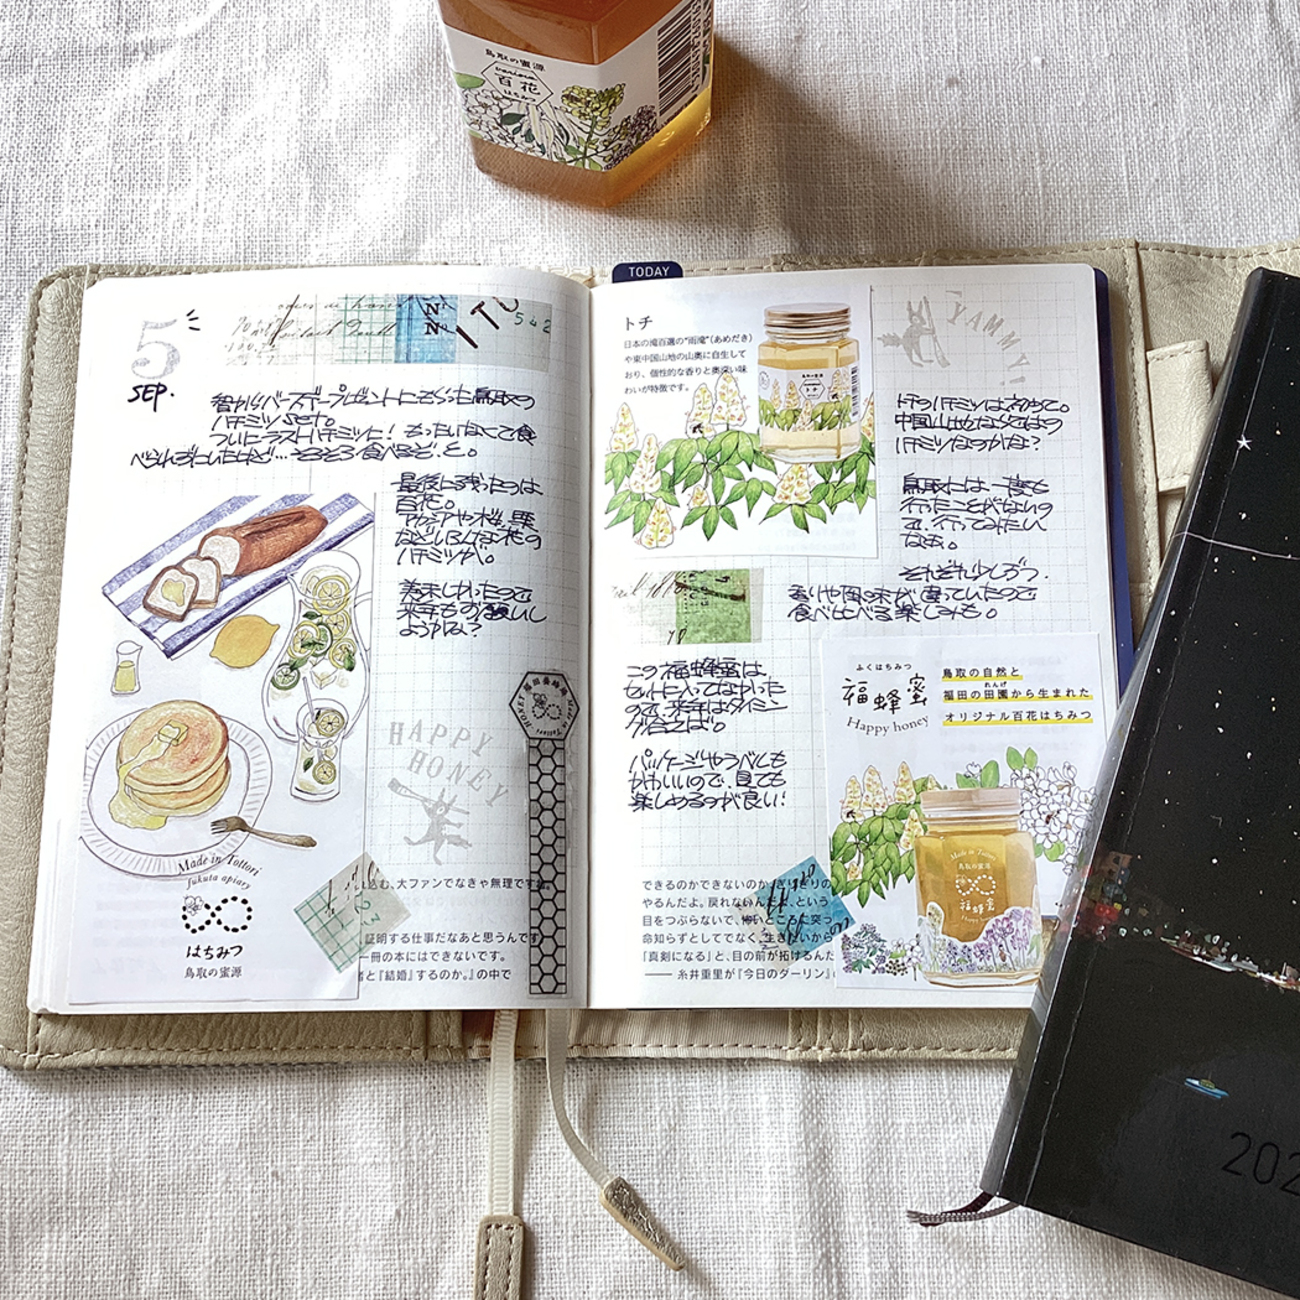 鳥取の蜜源
百花
はちみつ
TODAY
5
SEP.
542
ハチミツSET。
ついにラストハチミツに! もったいなくて食
べられずにいたけど…そろそろ食べるぞ、と。
最後に残ったのは
百花。
アカシアや桜、栗
などいろんな花の
ハチミツが。
美味しかったので
来年もお願いし
ようかな?
HAPPY
HONEY
HONEY 福田養蜂場 Made in Tottori
Made in Tottori
fukuta apiary
はちみつ
鳥取の蜜源
込む、大ファンでなきゃ無理ですね。
証明する仕事だなあと思うんです。
一冊の本にはできないです。
者と『結婚』するのか。』の中で
トチ
日本の滝百選の"雨滝"(あめだき)
や東中国山地の山奥に自生して
おり、個性的な香りと奥深い味
わいが特徴です。
鳥取の蜜源
トチ
YAMMY!
トチのハチミツは初めて。
中国山地ならではの
ハチミツなのかな?
鳥取には一度も
行ったことがないの
で、行ってみたい
なぁ。
それぞれ少しずつ
香りや風味が違っていたので
食べ比べる楽しみも。
この福蜂蜜は
セットに入ってなかった
ので、来年はタイミング
が合えば。
パッケージやラベルも
かわいいので、見ても
楽しめるのが良い!
ふくはちみつ
福蜂蜜
Happy honey
鳥取の自然と
れんげ
福田の田園から生まれた
オリジナル百花はちみつ
Made in Tottori
鳥取の蜜源
福蜂蜜
できるのかできないのか、ぎりぎりの
やるんだよ。戻れないんだよ、という
目をつぶらないで、怖いところに突っ
命知らずとしてでなく、生きたいから
「真剣になる」と、目の前が拓けるんだ
── 糸井重里が『今日のダーリン』
202